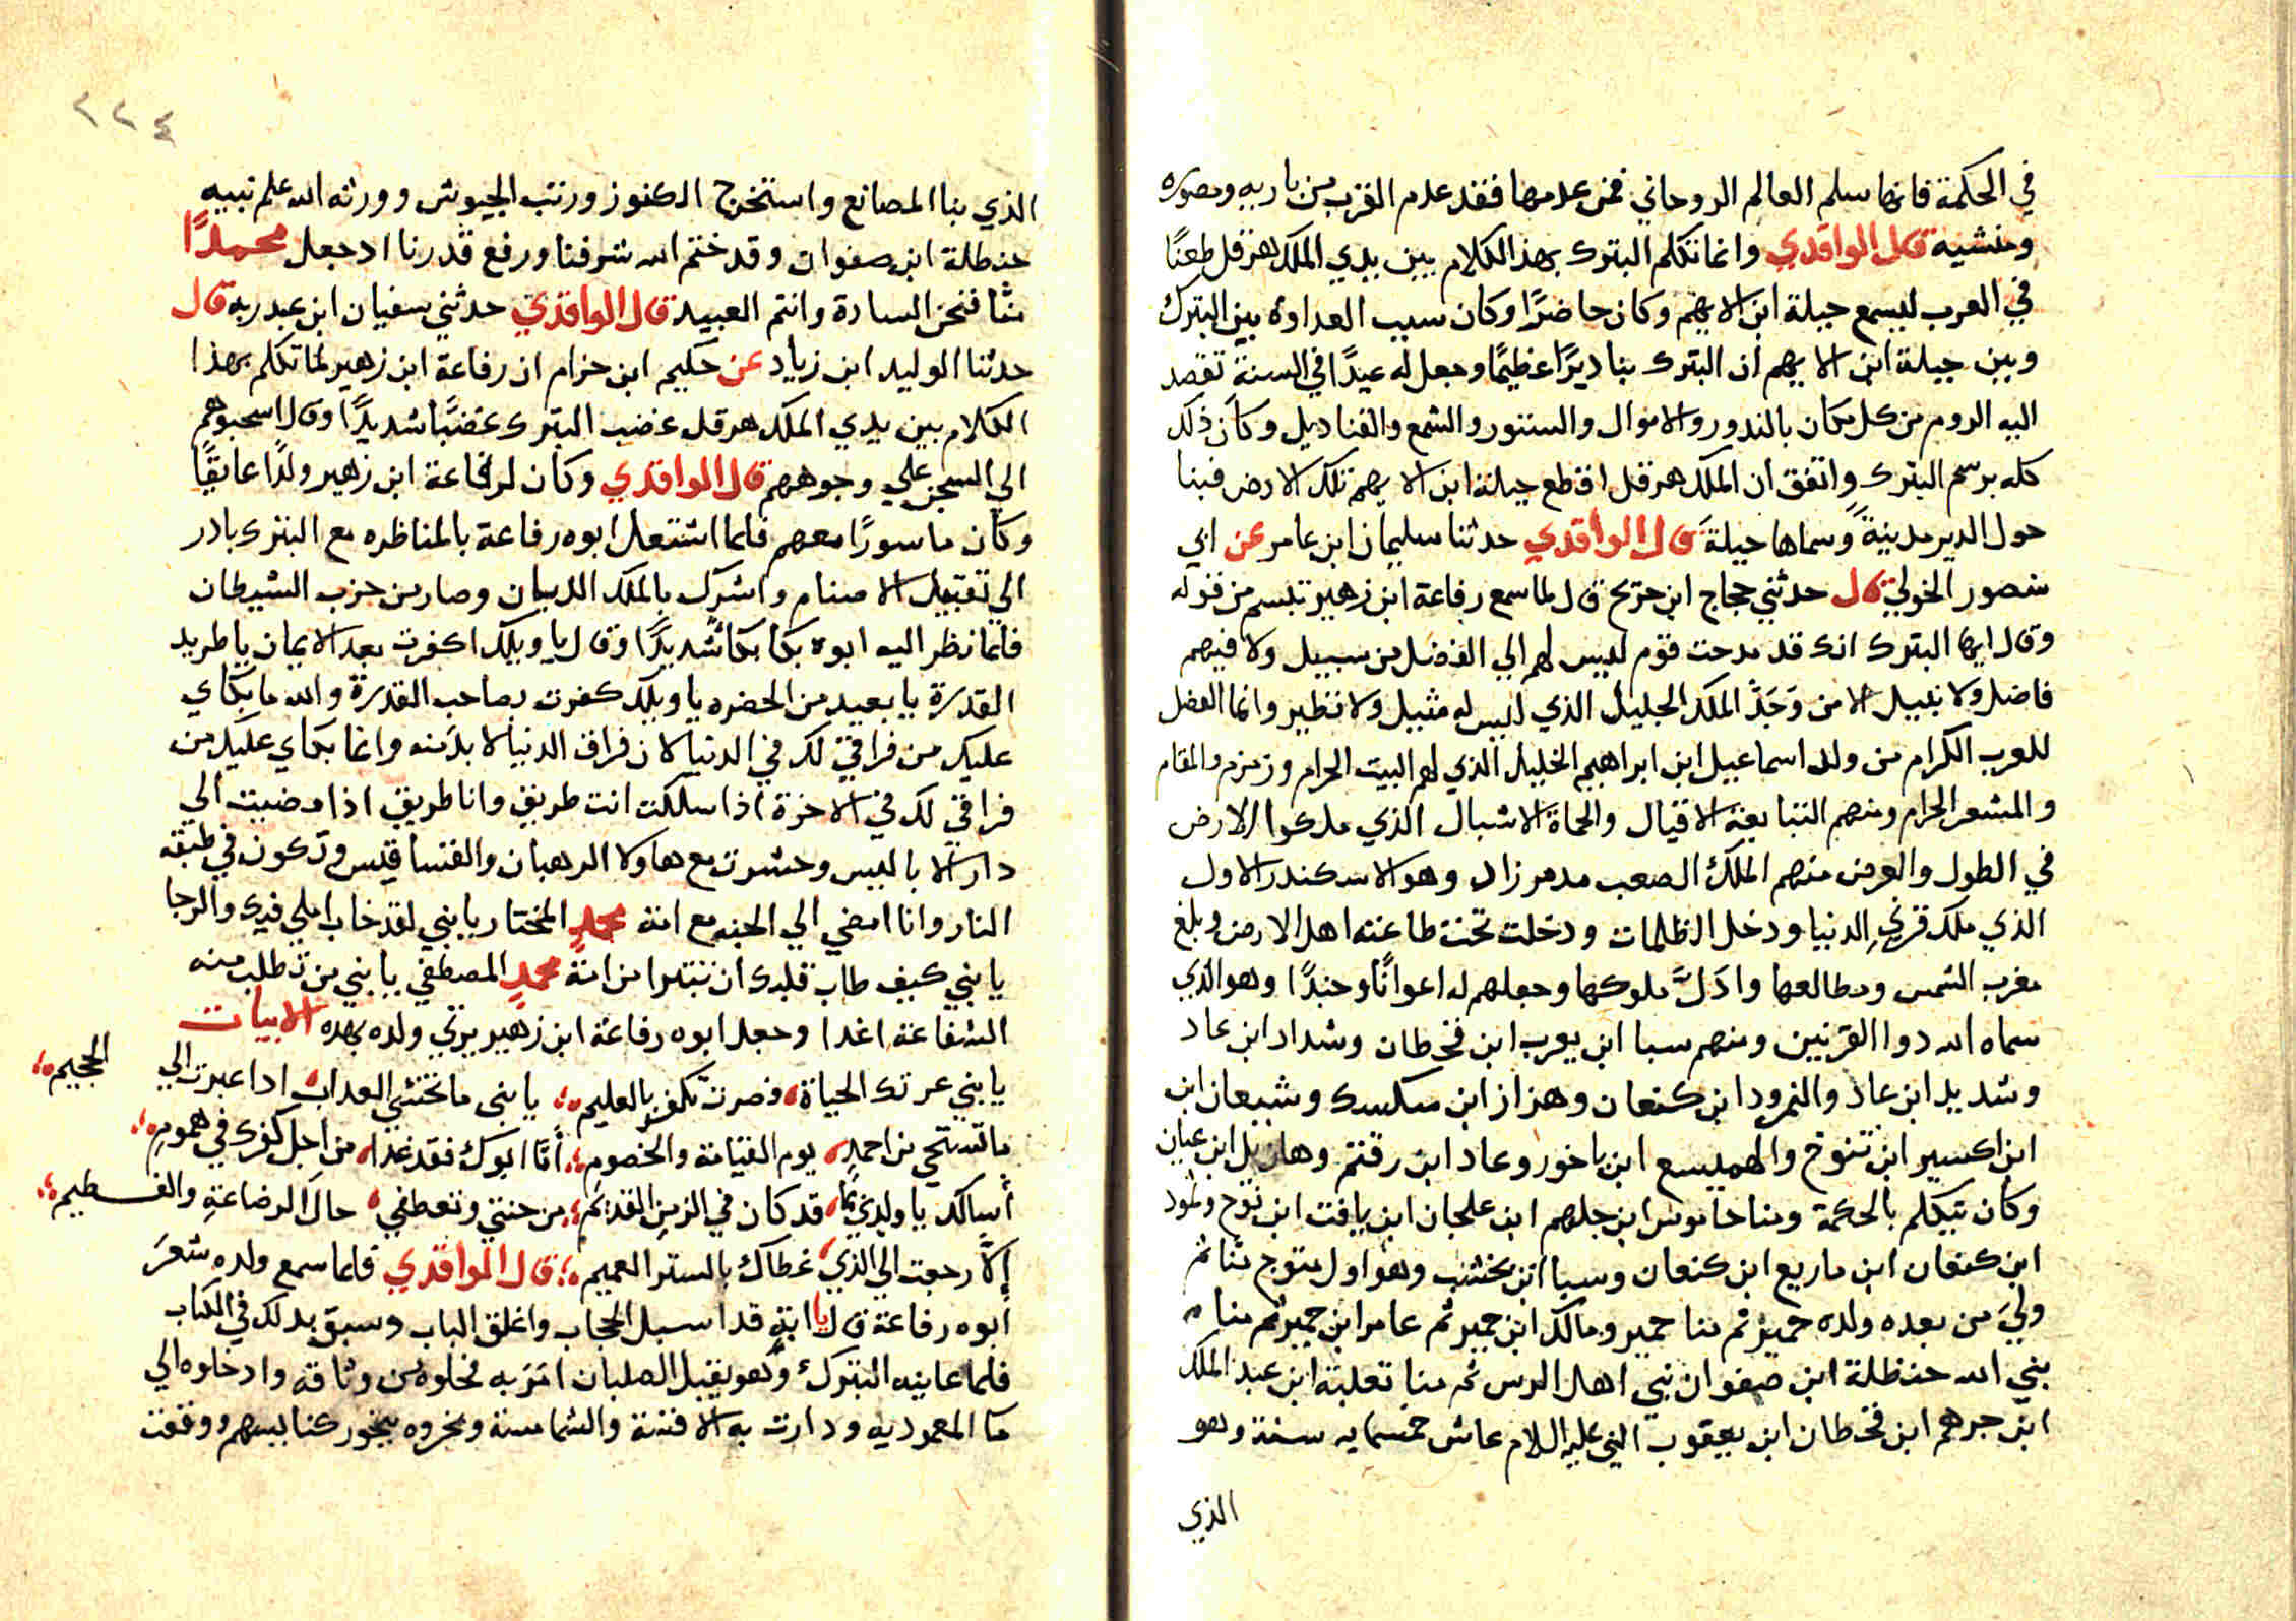 في الحكمة فانها سلم العالم الروحاني فمن عدمها فقد عدم القرب من باريه ومصوره
ومنشيه قال الواقدي وانما تكلم البترك بهذا الكلام بين يدي الملك هرقل طعنًا
في العرب ليسمع جبلة ابن الايهم وكان حاضرًا وكان سبب العداوة بين البترك
وبين جبلة ابن الايهم ان البترك بنا ديرًا عظيمًا وجعل له عيدًا في السنة تقصد
اليه الروم من كل مكان بالندور والاموال والستور والشمع والقناديل وكان ذلك
كله برسم البترك واتفق ان الملك هرقل اقطع جبلة ابن الايهم تلك الارض فبنا
حول الدير مدينةً وسماها جبلة قال الواقدي حدثنا سليمان ابن عامر عن ابي
منصور الخولي قال حدثني حجاج ابن جريح قال لما سمع رفاعة ابن زهير تبسم من قوله
وقال ايها البترك انك قد مدحت قوم ليس لهم الي الفضل من سبيل ولا فيهم
فاضل ولا نبيل الا من وَحَدَّ الملك الجليل الذي ليس له مثيل ولا نظير وانما الفضل
للعرب الكرام من ولد اسماعيل ابن ابراهيم الخليل الذي لهم البيت الحرام وزمزم والمقام
والمشعر الحرام ومنهم التبابعة الاقيال والحماة الاشبال الذي ملكوا الارض
في الطول والعرض منهم الملك الصعب مدمر زال وهو الاسكندر الاول
الذي ملك قرني الدنيا ودخل الظلمات ودخلت تحت طاعته اهل الارض وبلغ
مغرب الشمس ومطالعها واذلَّ ملوكها وجعلهم له اعوانًا وجندًا وهو الذي
سماه الله دوا القرنين ومنهم سبا ابن يعرب ابن قحطان وشداد ابن عاد
وشديد ابن عاد والنمرود ابن كنعان وهزاز ابن سكسك وشبعان ابن
ابن اكسير ابن تنوخ والهميسع ابن باخور وعاد ابن رقتم وهازيل ابن عبان
وكان يتكلم بالحكمة ومنا حانوس ابن جلهم ابن علجان ابن يافت ابن نوح وثمود
ابن كنعان ابن ماريع ابن كنعان وسبا ابن يخشب وهو اول متوج منا ثم
وليَ من بعده ولده حمير ثم منا حمير ومالك ابن حمير ثم عامر ابن حمير ثم منا
نبي الله حنظلة ابن صفوان نبي اهل الرس ثم منا تعلبة ابن عبد الملك
ابن جرهم ابن قحطان ابن يعقوب النبي عليه السلام عاش خمسمايه سنة وهو
الذي
٢٢٤
الذي بنا المصانع واستخرج الكنوز ورتب الجيوش وورثه الله علم نبيه
حنطلة ابن صفوان وقد ختم الله شرفنا ورفع قدرنا اد جعل محمدًا
منّا فنحن السادة وانتم العبيد قال الواقدي حدثني سفيان ابن عبد ربه قال
حدثنا الوليد ابن زياد عن حكيم ابن حزام ان رفاعة ابن زهير لما تكلم بهذا
الكلام بين يدي الملك هرقل غضب البترك غضبًا شديدًا وقال اسحبوهم
الي السجن علي وجوههم قال الواقدي وكان لرفاعة ابن زهير ولدًا عايقًا
وكان ماسورًا معهم فلما اشتغل ابوه رفاعة بالمناظره مع البترك بادر
الي تقبيل الاصنام واشرك بالملك الديان وصار من حزب الشيطان
فلما نظر اليه ابوه بكا بكاً شديدًا وقال يا ويلك اكفرت بعد الايمان يا طريد
القدرة يا بعيد من الحضره يا ويلك كفرت بصاحب القدرة والله ما بكاي
عليك من فراقي لك في الدنيا لان فراق الدنيا لا بد منه وانما بكاي عليك من
فراقي لك في الاخرة اذا سلكت انت طريق وانا طريق اذا مضيت الي
دار الاباليس وحشرت مع هاولا الرهبان والقساقيس وتكون في طبقة
النار وانا امضي الي الجنه مع امة محمدٍ المختار يا بني لقد خاب املي فيك والرجا
يا بني كيف طاب قلبك ان تتبرا من امة محمدٍ المصطفي يا بني من تطلب منه
الشفاعة اغدا وجعل ابوه رفاعة ابن زهير يرثي ولده بهده الابيات
يا بني عرتك الحياة وصرت تكفر بالعليم يا بني ما تختشي العداب ادا عبرت الي الجحيم
ما تستحي من احمدٍ يوم القيامة والخصوم أمّا ابوك فقد غدا من اجل كفرك في هموم
أسالك يا ولدي بما قد كان في الزمن القديم من حنتي وتعطفي حال الرضاعةِ والفطيم
إلّا رجعت الي الذي غطاك بالستر العميم قال الواقدي فلما سمع ولده شعرَ
أبوه رفاعة قال يا ابةِ قد اسبل الحجاب واغلق الباب وسبق بدلك في الكتاب
فلما عاينه البترك وهو يقبل الصلبان امَرَ به فحلوه من وثاقه وادخلوه الي
ما المعموديه ودارت به الاقسة والشمامسة وبخروه ببخور كنايسهم ووقفت